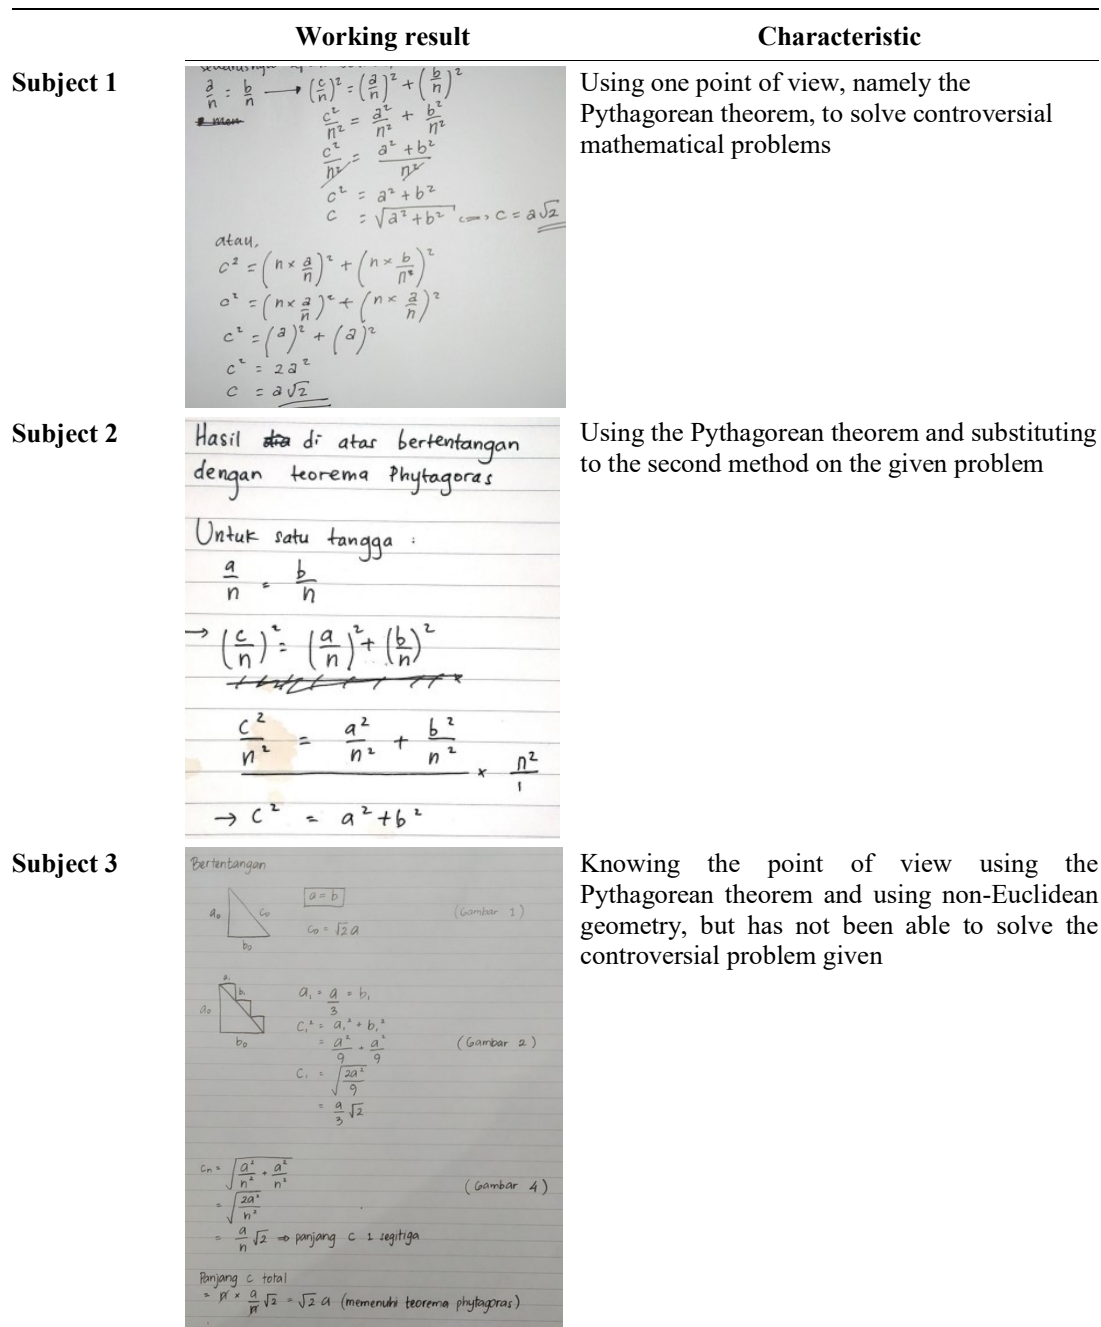 Working result Characteristic
Subject 1
a/n = b/n → (c/n)² = (a/n)² + (b/n)²
c²/n² = a²/n² + b²/n²
c²/n² = a² + b²/n²
c² = a² + b²
c = √a² + b² ⟺ c = a√2
atau,
c² = (n × a/n)² + (n × b/n)²
c² = (n × a/n)² + (n × a/n)²
c² = (a)² + (a)²
c² = 2a²
c = a√2
Using one point of view, namely the
Pythagorean theorem, to solve controversial
mathematical problems
Subject 2
Hasil di atas bertentangan
dengan teorema Phytagoras
Untuk satu tangga :
a/n = b/n
→ (c/n)² = (a/n)² + (b/n)²
c²/n² = a²/n² + b²/n² × n²/1
→ c² = a² + b²
Using the Pythagorean theorem and substituting
to the second method on the given problem
Subject 3
Bertentangan
a₀ c₀ b₀
a = b
c₀ = √2 a
(Gambar 1)
a₁ b₁ a₀ b₀
a₁ = a/3 = b₁
c₁² = a₁² + b₁²
= a²/9 + a²/9
(Gambar 2)
c₁ = √2a²/9
= a/3 √2
cn = √a²/n² + a²/n²
(Gambar 4)
= √2a²/n²
= a/n √2 ⇒ panjang c 1 segitiga
Panjang c total
= n × a/n √2 = √2 a (memenuhi teorema phytagoras)
Knowing the point of view using the
Pythagorean theorem and using non-Euclidean
geometry, but has not been able to solve the
controversial problem given